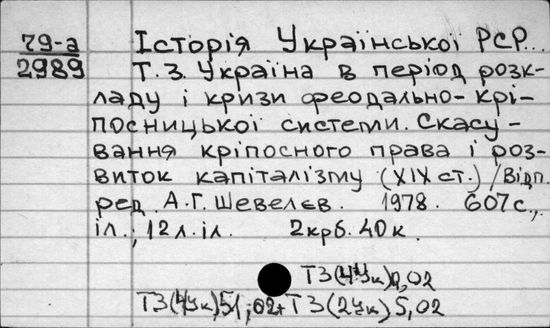 79-а Історія Української РСР...
2989 Т.3. Україна в період розк-
ладу і кризи феодально-крі-
посницької системи. Скасу-
вання кріпосного права і роз-
виток капіталізму (XIX ст.) / Відп.
ред. А.Г. Шевелєв. 1978. 607 с.,
іл.; 12 л. іл. 2 крб. 40 к.
Т3(4Ук) ,02
Т3(4Ук)51,02+Т3(2Ук)5,02